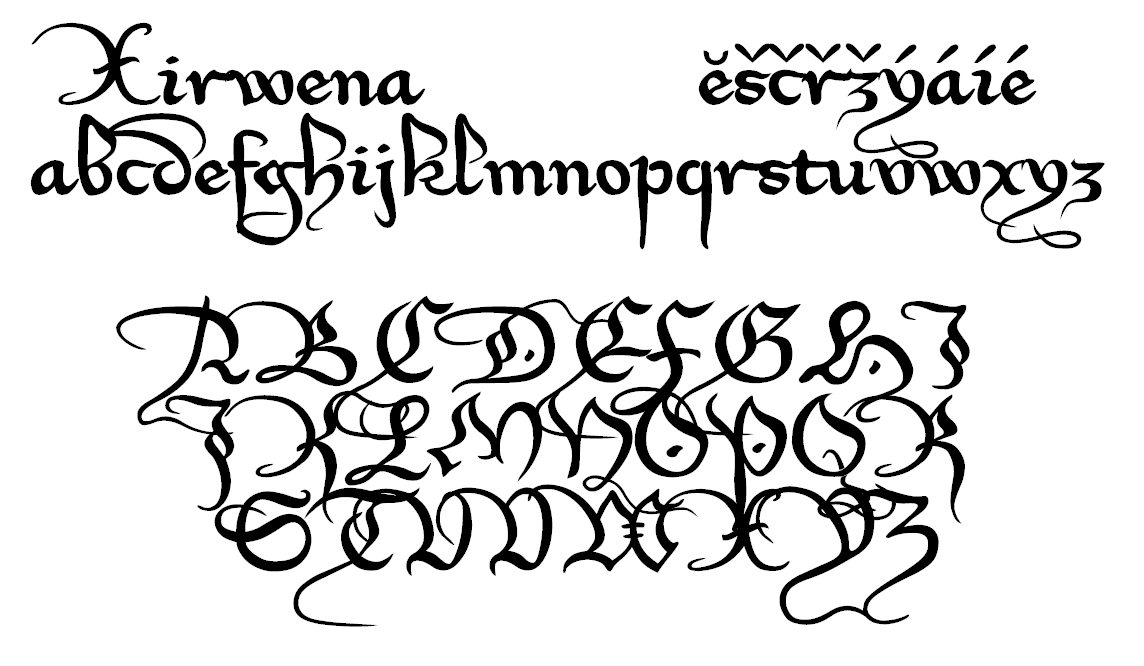 Xirwena ěščřžýáíé
abcdefghijklmnopqrstuvwxyz
ABCDEFGHI
JKLMNOPQR
STUVWXYZ